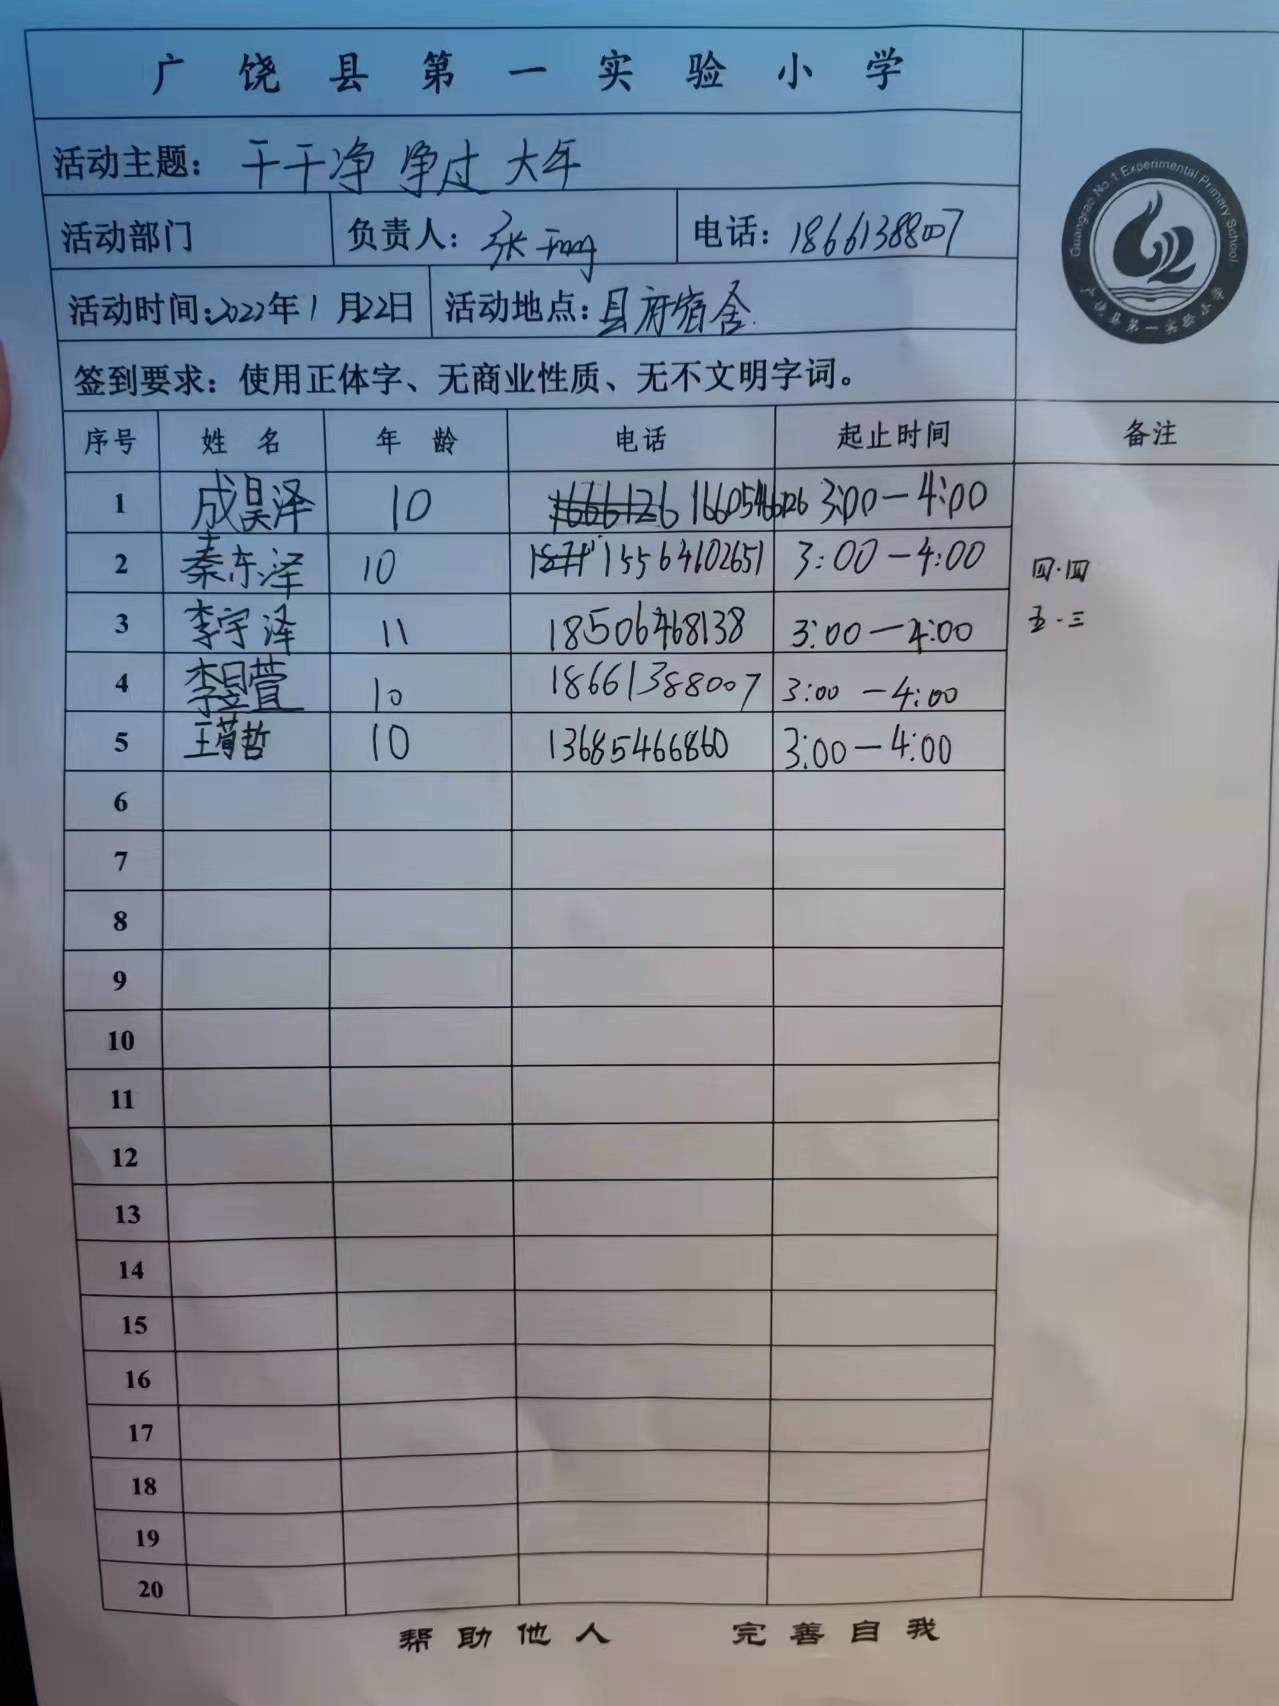 广饶县第一实验小学
活动主题：干干净净过大年
活动部门 负责人：张 电话：18661388007
活动时间：2022年1月22日 活动地点：县府宿舍
签到要求：使用正体字、无商业性质、无不文明字词。
Guangrao No.1 Experimental Primary School
广饶县第一实验小学
序号 姓名 年龄 电话 起止时间 备注
1 成昊泽 10 3:00—4:00
2 秦东泽 10 15564102651 3:00—4:00 四·四
3 李宇泽 11 18506468138 3:00—4:00 五·三
4 李昱萱 10 18661388007 3:00—4:00
5 王荀哲 10 13685466860 3:00—4:00
6
7
8
9
10
11
12
13
14
15
16
17
18
19
20
帮助他人 完善自我